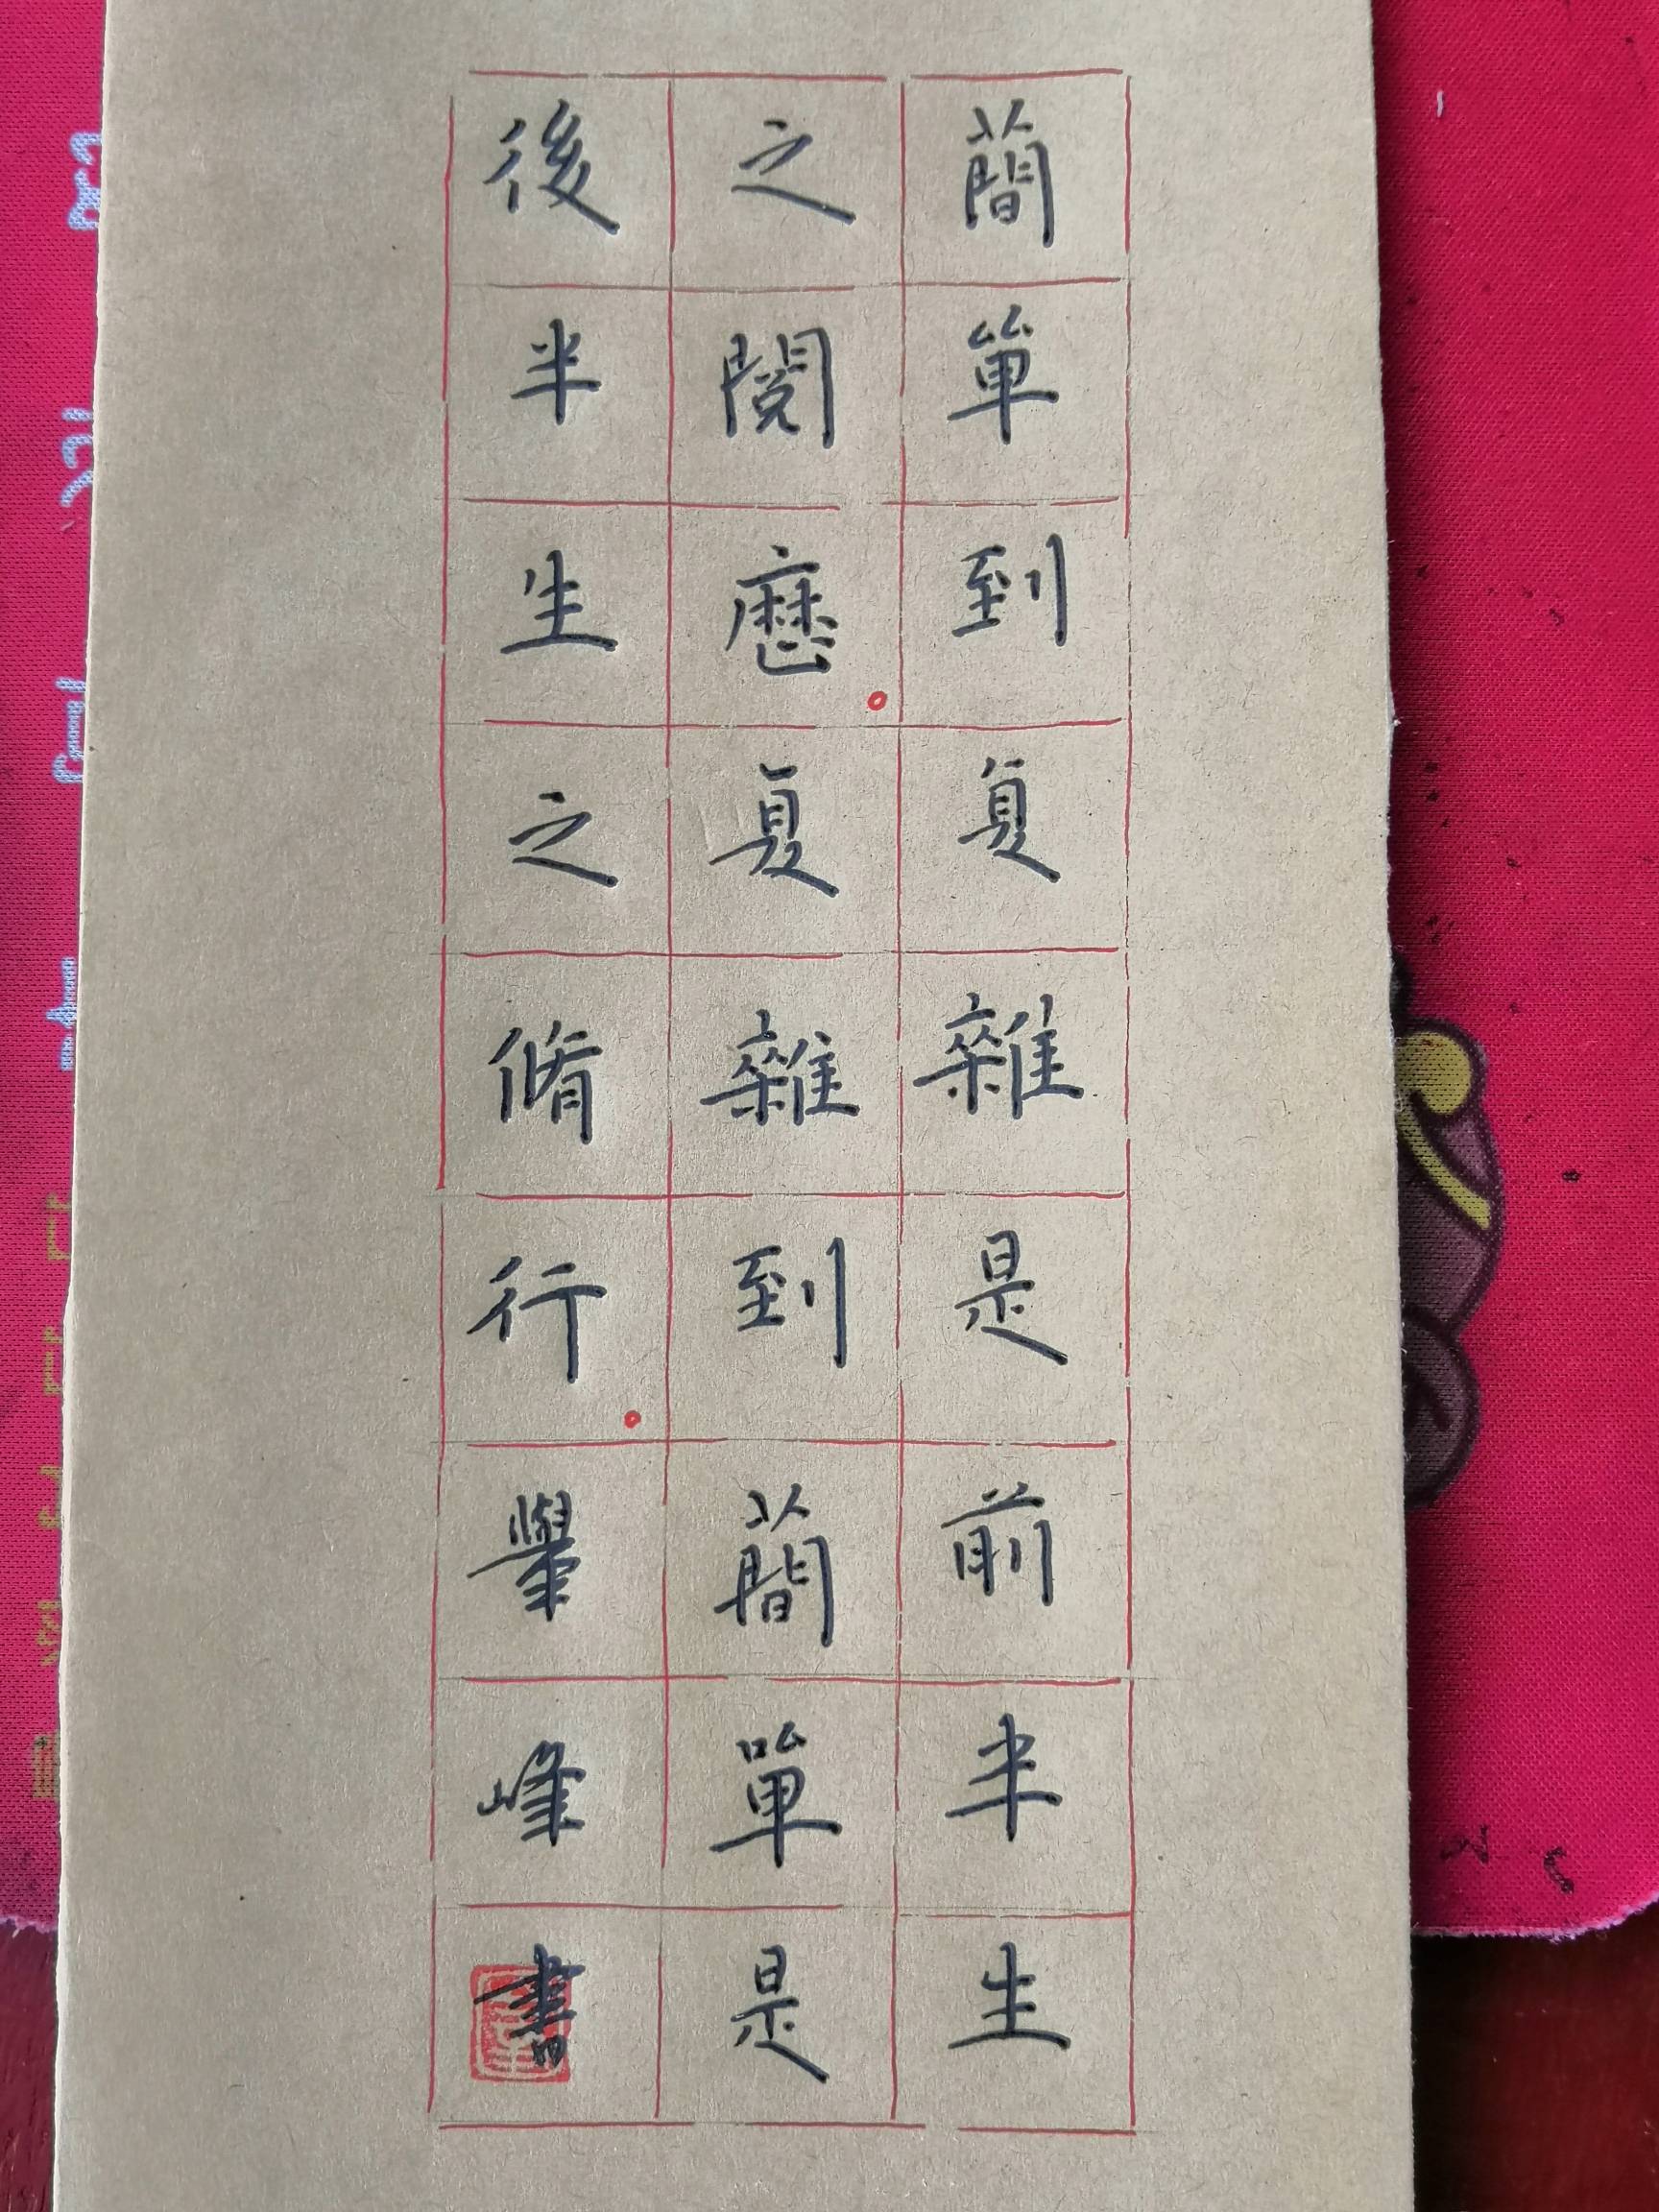 簡單到复雜是前半生
之閱歷。复雜到簡單是
後半生之脩行。舉峰書